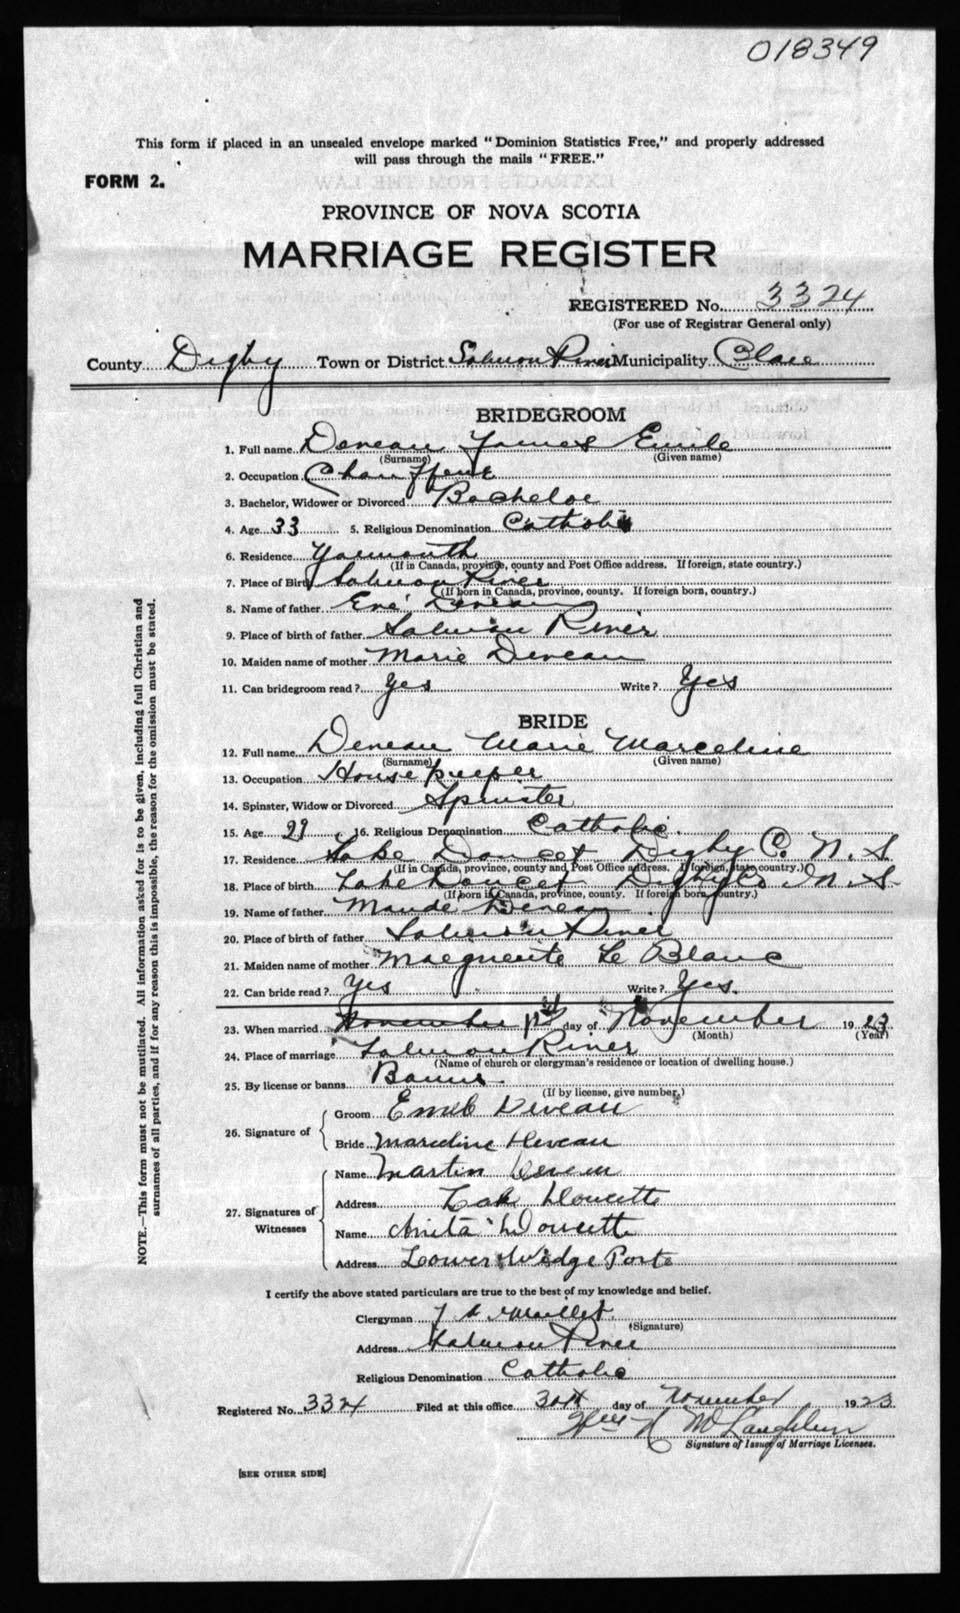 018349
This form if placed in an unsealed envelope marked "Dominion Statistics Free," and properly addressed
will pass through the mails "FREE."
FORM 2.
PROVINCE OF NOVA SCOTIA
MARRIAGE REGISTER
REGISTERED No. 3324
(For use of Registrar General only)
County Digby Town or District Salmon River Municipality Clare
BRIDEGROOM
1. Full name Deveau James Emile
(Surname) (Given name)
2. Occupation Chauffeur
3. Bachelor, Widower or Divorced Bachelor
4. Age 33 5. Religious Denomination Catholic
6. Residence Yarmouth
(If in Canada, province, county and Post Office address. If foreign, state country.)
7. Place of Birth Salmon River
(If born in Canada, province, county. If foreign born, country.)
8. Name of father Deveau
9. Place of birth of father Salmon River
10. Maiden name of mother Marie Deveau
11. Can bridegroom read? Yes Write? Yes
BRIDE
12. Full name Deveau Marie Marceline
(Surname) (Given name)
13. Occupation House keeper
14. Spinster, Widow or Divorced Spinster
15. Age 29 16. Religious Denomination Catholic.
17. Residence Lake Doucet Digby Co. N. S
(If in Canada, province, county and Post Office address. If foreign, state country.)
18. Place of birth Lake Doucet Digby Co N. S.
(If born in Canada, province, county. If foreign born, country.)
19. Name of father Mande Deveau
20. Place of birth of father Salmon River
21. Maiden name of mother Marguerite Le Blanc
22. Can bride read? Yes Write? Yes.
23. When married November day of November 1923
(Month) (Year)
24. Place of marriage Salmon River
(Name of church or clergyman's residence or location of dwelling house.)
25. By license or banns Banns
(If by license, give number.)
26. Signature of
Groom Emile Deveau
Bride Marceline Deveau
27. Signatures of Witnesses
Name Martin Deveau
Address Lak Doucette
Name Anita Doucette
Address Lower Wedge Porte
I certify the above stated particulars are true to the best of my knowledge and belief.
Clergyman Maillet
(Signature)
Address Salmon River
Religious Denomination Catholic
Registered No. 3324 Filed at this office 30th day of November 1923
Wm H McLaughlin
Signature of Issuer of Marriage Licenses.
[SEE OTHER SIDE]
NOTE.—This form must not be mutilated. All information asked for is to be given, including full Christian and
surnames of all parties, and if for any reason this is impossible, the reason for the omission must be stated.